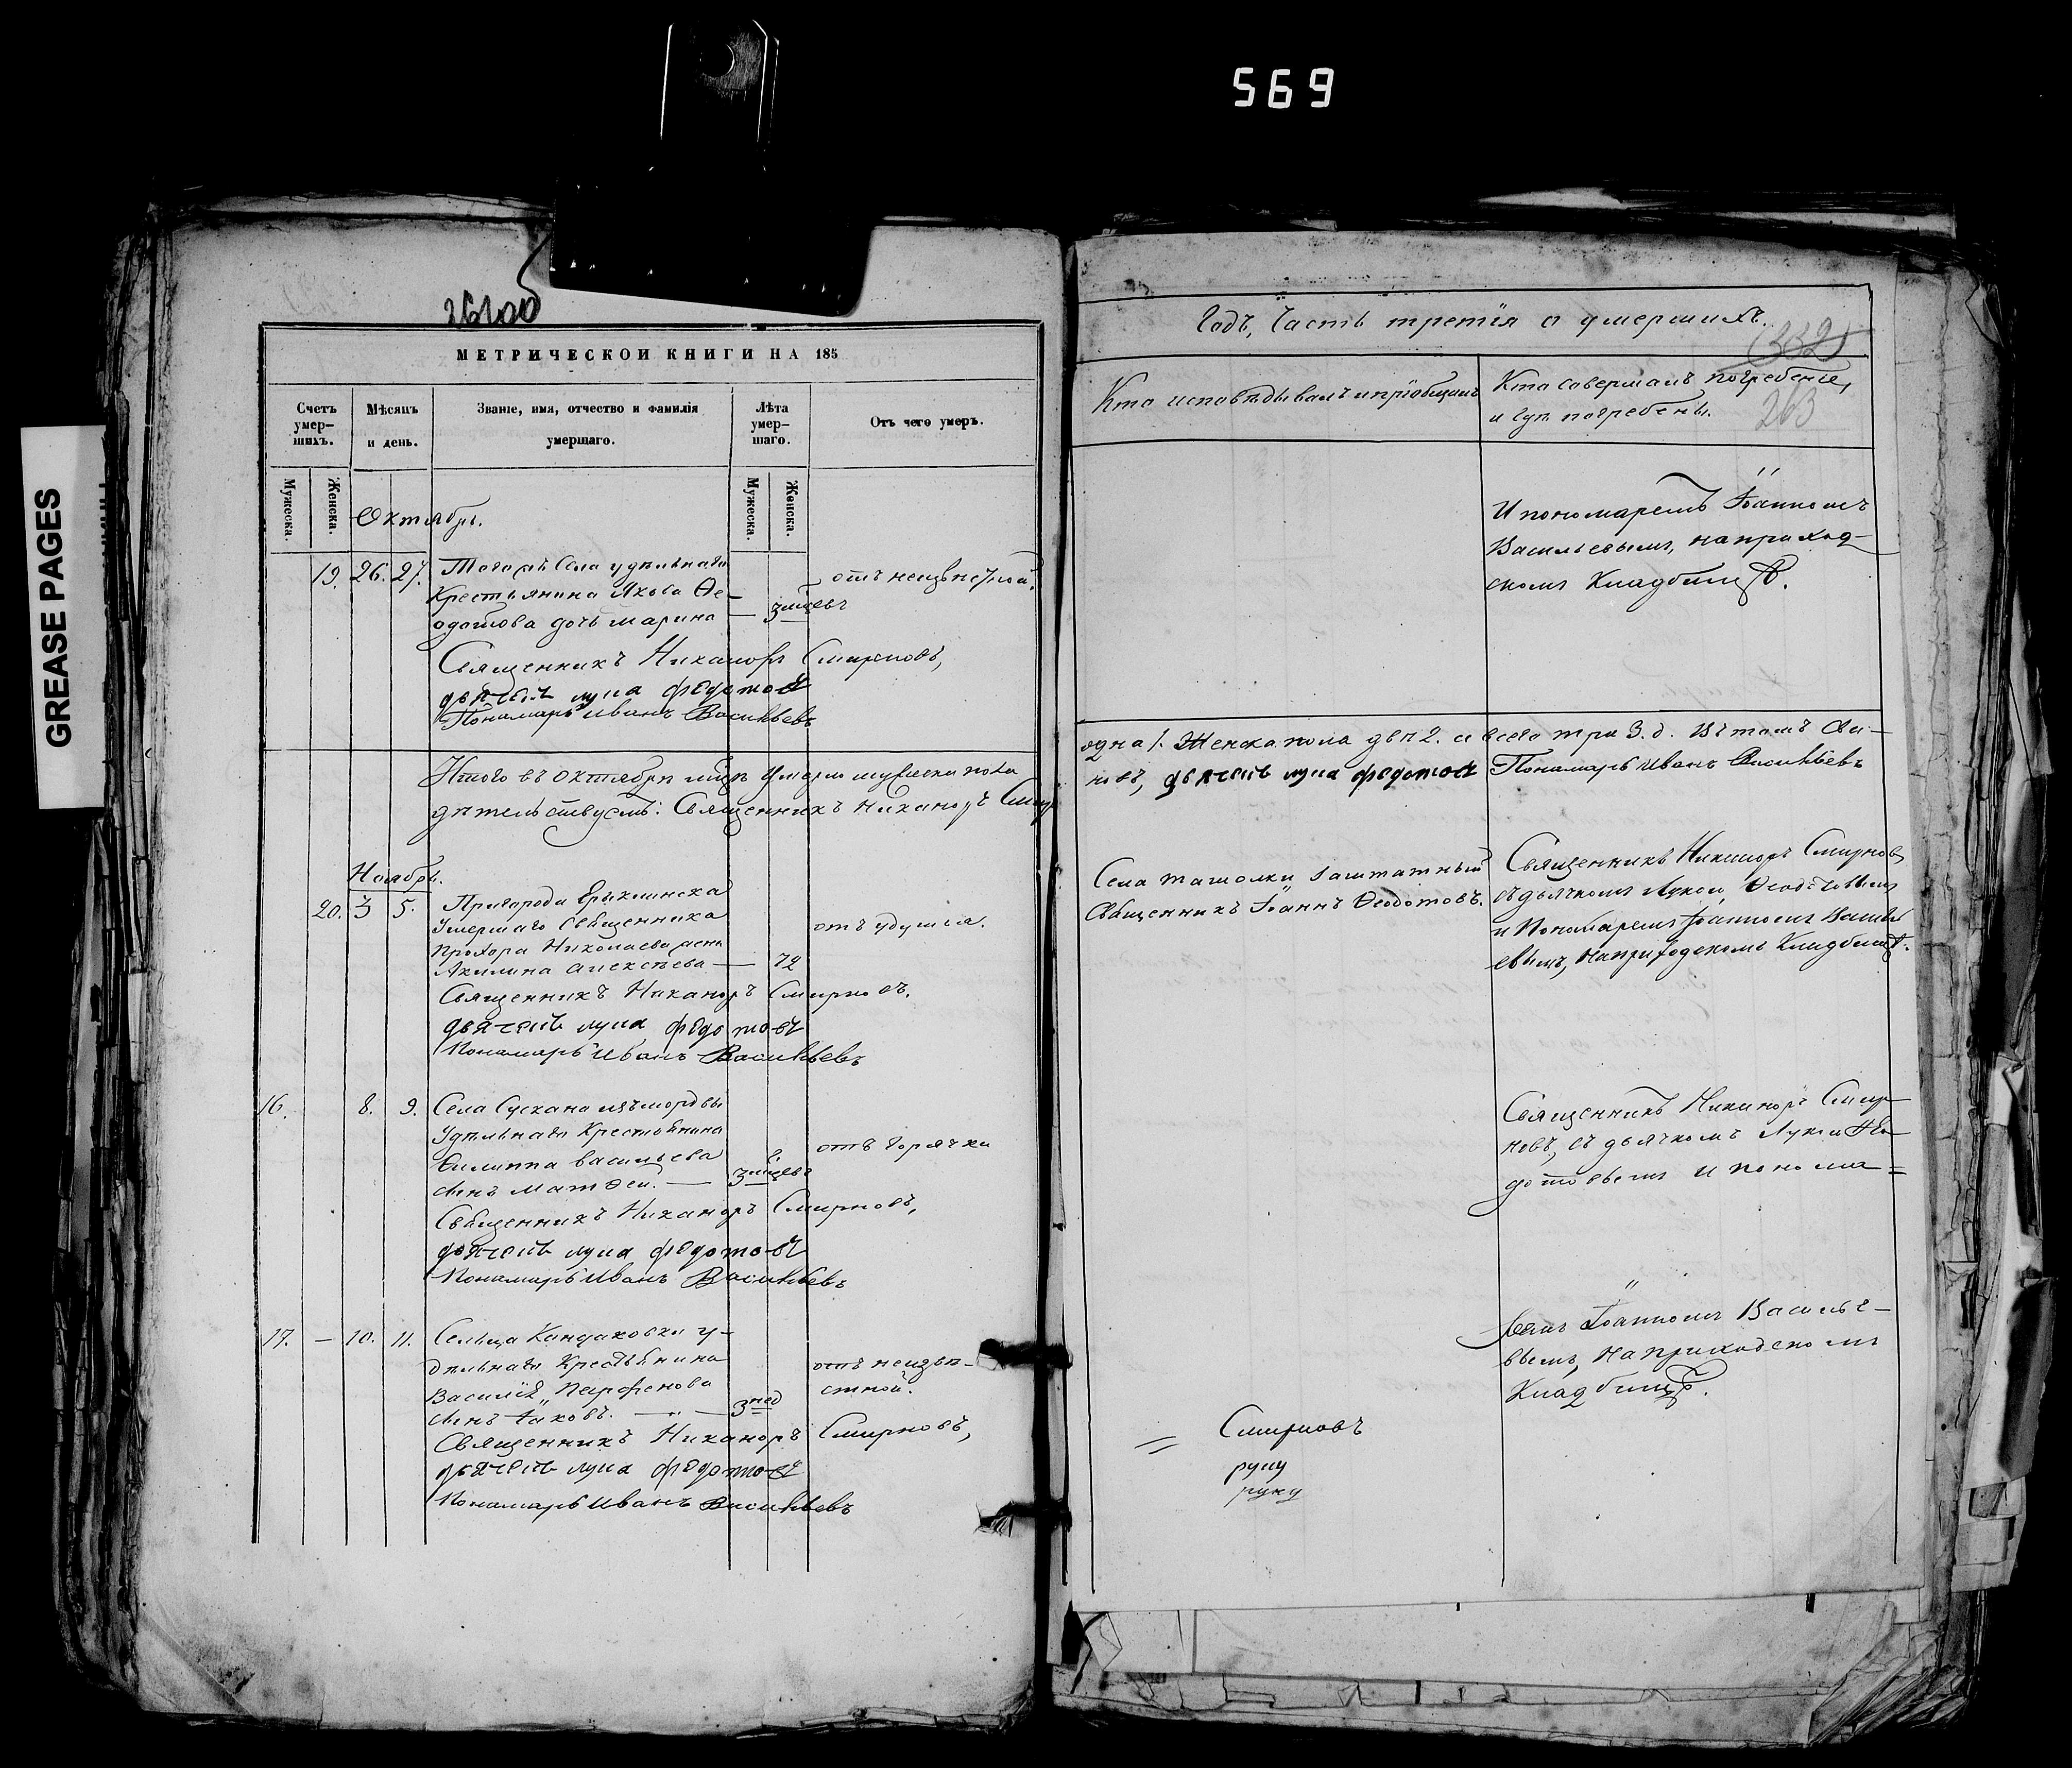 569
GREASE PAGES
МЕТРИЧЕСКОЙ КНИГИ НА 185
Счетъ умер–шихъ.
Мѣсяцъ и день.
Званіе, имя, отчество и фамилія умершаго.
Лѣта умер–шаго.
Отъ чего умеръ.
Мужеска.
Женска.
Мужеска.
Женска.
Октябрь.
19. 26. 27. Тогожъ Села удѣльнаго
Крестьянина Якова Ѳе–
одотова дочь Марина — 3 мѣсцевъ
отъ неизвѣстной.
Священникъ Никаноръ Смирновъ,
дьячекъ лука федотовъ
Пономарь Иванъ Васильевъ
Итого въ октябрѣ мцѣ умерло мужеска пола
дѣтельствуетъ: Священникъ Никаноръ Смир
Ноябрь.
20. 3 5. Пригорода Ерыклинска
Умершаго Священника
Прохора Николаева жена
Акилина Алексѣева — 72
отъ удушья.
Священникъ Никаноръ Смирновъ.
дьячекъ лука федотовъ
Пономарь Иванъ Васильевъ
16. 8. 9. Села Сускана изъ мордвы
Удѣльнаго Крестьянина
Филиппа Васильева
сынъ Матѳей. — 3 мѣсцевъ
отъ горячки
Священникъ Никаноръ Смирновъ,
дьячекъ лука федотовъ
Пономарь Иванъ Васильевъ
17. — 10. 11. Сельца Кандаковки у–
дѣльнаго Крестьянина
Василія Парфенова
сынъ Іаковъ. — 3 нед
отъ неизвѣ–
стной.
Священникъ Никаноръ Смирновъ,
дьячекъ лука федотовъ
Пономарь Иванъ Васильевъ
Годъ, Часть третія о умершихъ.
332
263
Кто исповѣдывалъ и пріобщалъ
Кто совершалъ погребеніе,
и гдѣ погребены.
И пономаремъ Іоанномъ
Васильевымъ, на приход–
скомъ Кладбищѣ.
одна 1. Женска пола двѣ 2. а всего три 3. д. Въ томъ Сви–
новъ, дьячекъ лука федотовъ Пономарь Иванъ Васильевъ
Села ташолки Заштатный
Священникъ Іоаннъ Ѳеодотовъ.
Священникъ Никаноръ Смирновъ
съ дьячкомъ Лукою Ѳеодотовымъ
и Пономаремъ Іоанномъ Василь
евымъ, На приходскомъ Кладбищѣ.
Священникъ Никаноръ Смир–
новъ, съ дьячкомъ Лукою Ѳео–
дотовымъ и понома=
ремъ Іоанномъ Василье–
вымъ, На приходскомъ
Кладбищѣ.
= Смирновъ
руку
руку